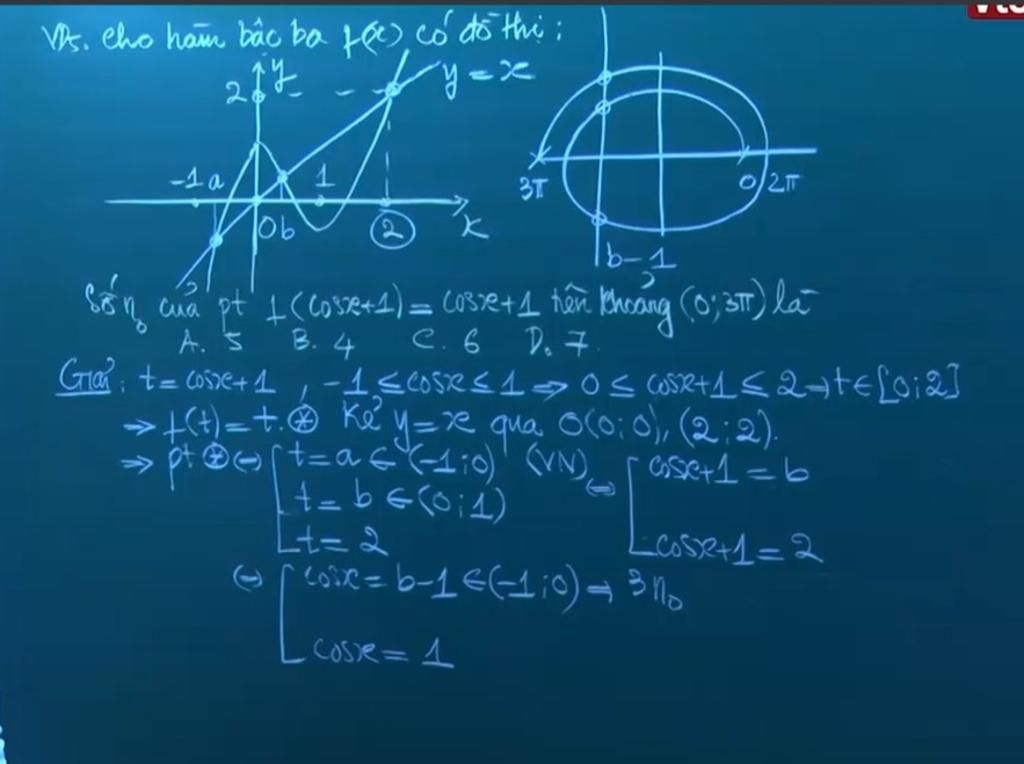 VD5. Cho hàm bậc ba f(x) có đồ thị:
y
2
y = x
-1 a
1
0 b
2
x
3π
0
2π
b-1
Số n₀ của pt f(cosx+1) = cosx+1 trên khoảng (0; 3π) là
A. 5 B. 4 C. 6 D. 7
Giải: t = cosx+1, -1 ≤ cosx ≤ 1 ⇒ 0 ≤ cosx+1 ≤ 2 → t ∈ [0;2]
⇒ f(t) = t. ⊛ Kẻ y = x qua O(0;0), (2;2).
⇒ pt ⊛ ⇔ [ t = a ∈ (-1;0) (VN) ⇔ [ cosx+1 = b
t = b ∈ (0;1)
t = 2 cosx+1 = 2
⇔ [ cosx = b-1 ∈ (-1;0) → 3 n₀
cosx = 1